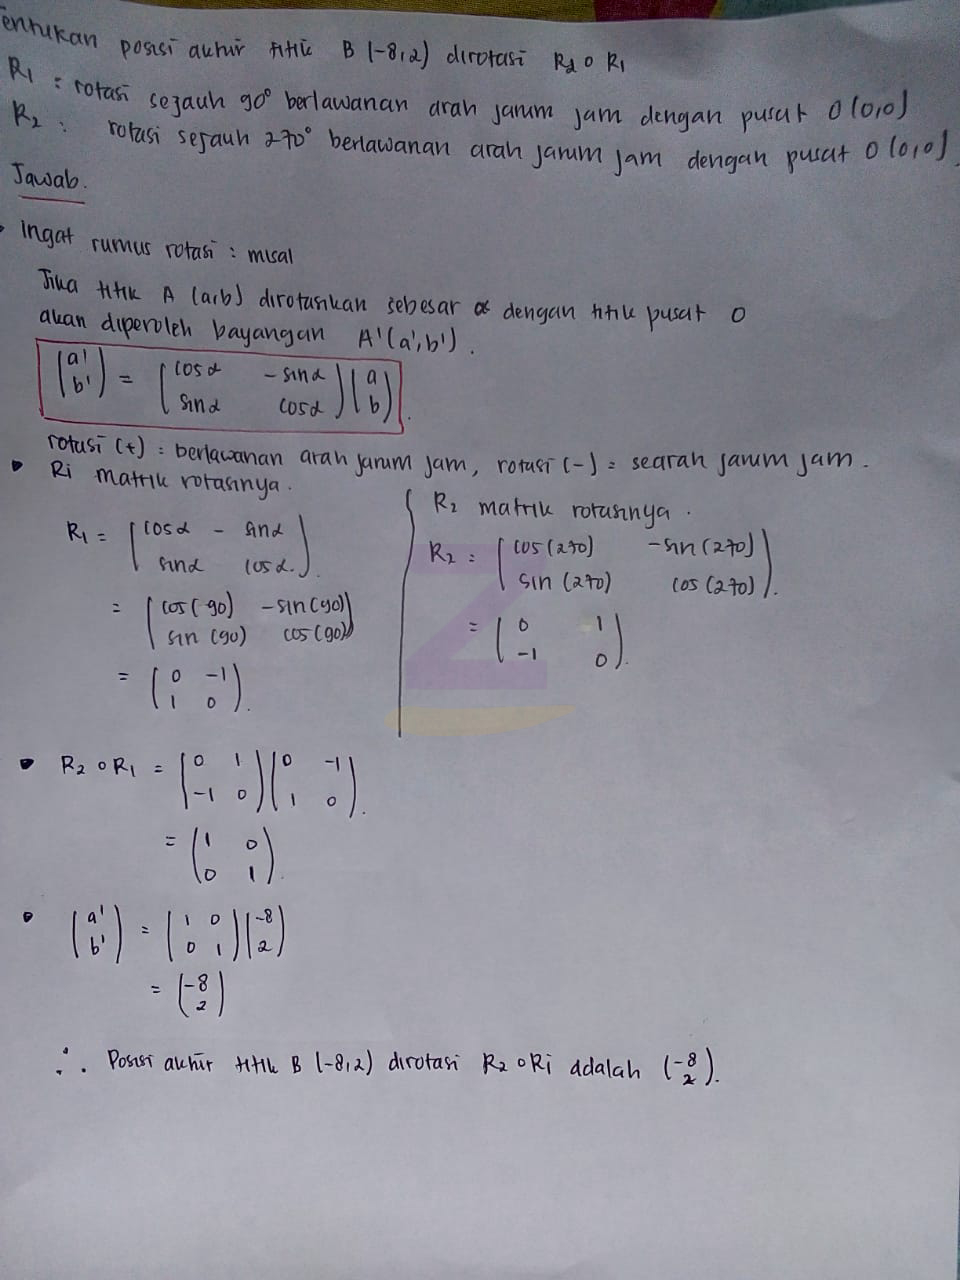 entukan posisi akhir titik B (-8,2) dirotasi R2 o R1
R1 : rotasi sejauh 90° berlawanan arah jarum jam dengan pusat O (0,0)
R2 : rotasi sejauh 270° berlawanan arah jarum jam dengan pusat O (0,0)
Jawab.
• Ingat rumus rotasi : misal
Jika titik A (a,b) dirotasikan sebesar α dengan titik pusat O
akan diperoleh bayangan A'(a',b').
(a' b') = (cos α - sin α
sin α cos α) (a b).
rotasi (+) = berlawanan arah jarum jam, rotasi (-) = searah jarum jam.
• R1 matrik rotasinya.
R1 = (cos α - sin α
sin α cos α.).
= (cos (90) - sin (90)
sin (90) cos (90))
= (0 -1
1 0).
R2 matrik rotasinya.
R2 = (cos (270) - sin (270)
sin (270) cos (270)).
= (0 1
-1 0).
• R2 o R1 = (0 1 (0 -1
-1 0) 1 0).
= (1 0
0 1).
• (a' = (1 0 (-8
b') 0 1) 2)
= (-8
2)
∴ Posisi akhir titik B (-8,2) dirotasi R2 o R1 adalah (-8 2).
Z